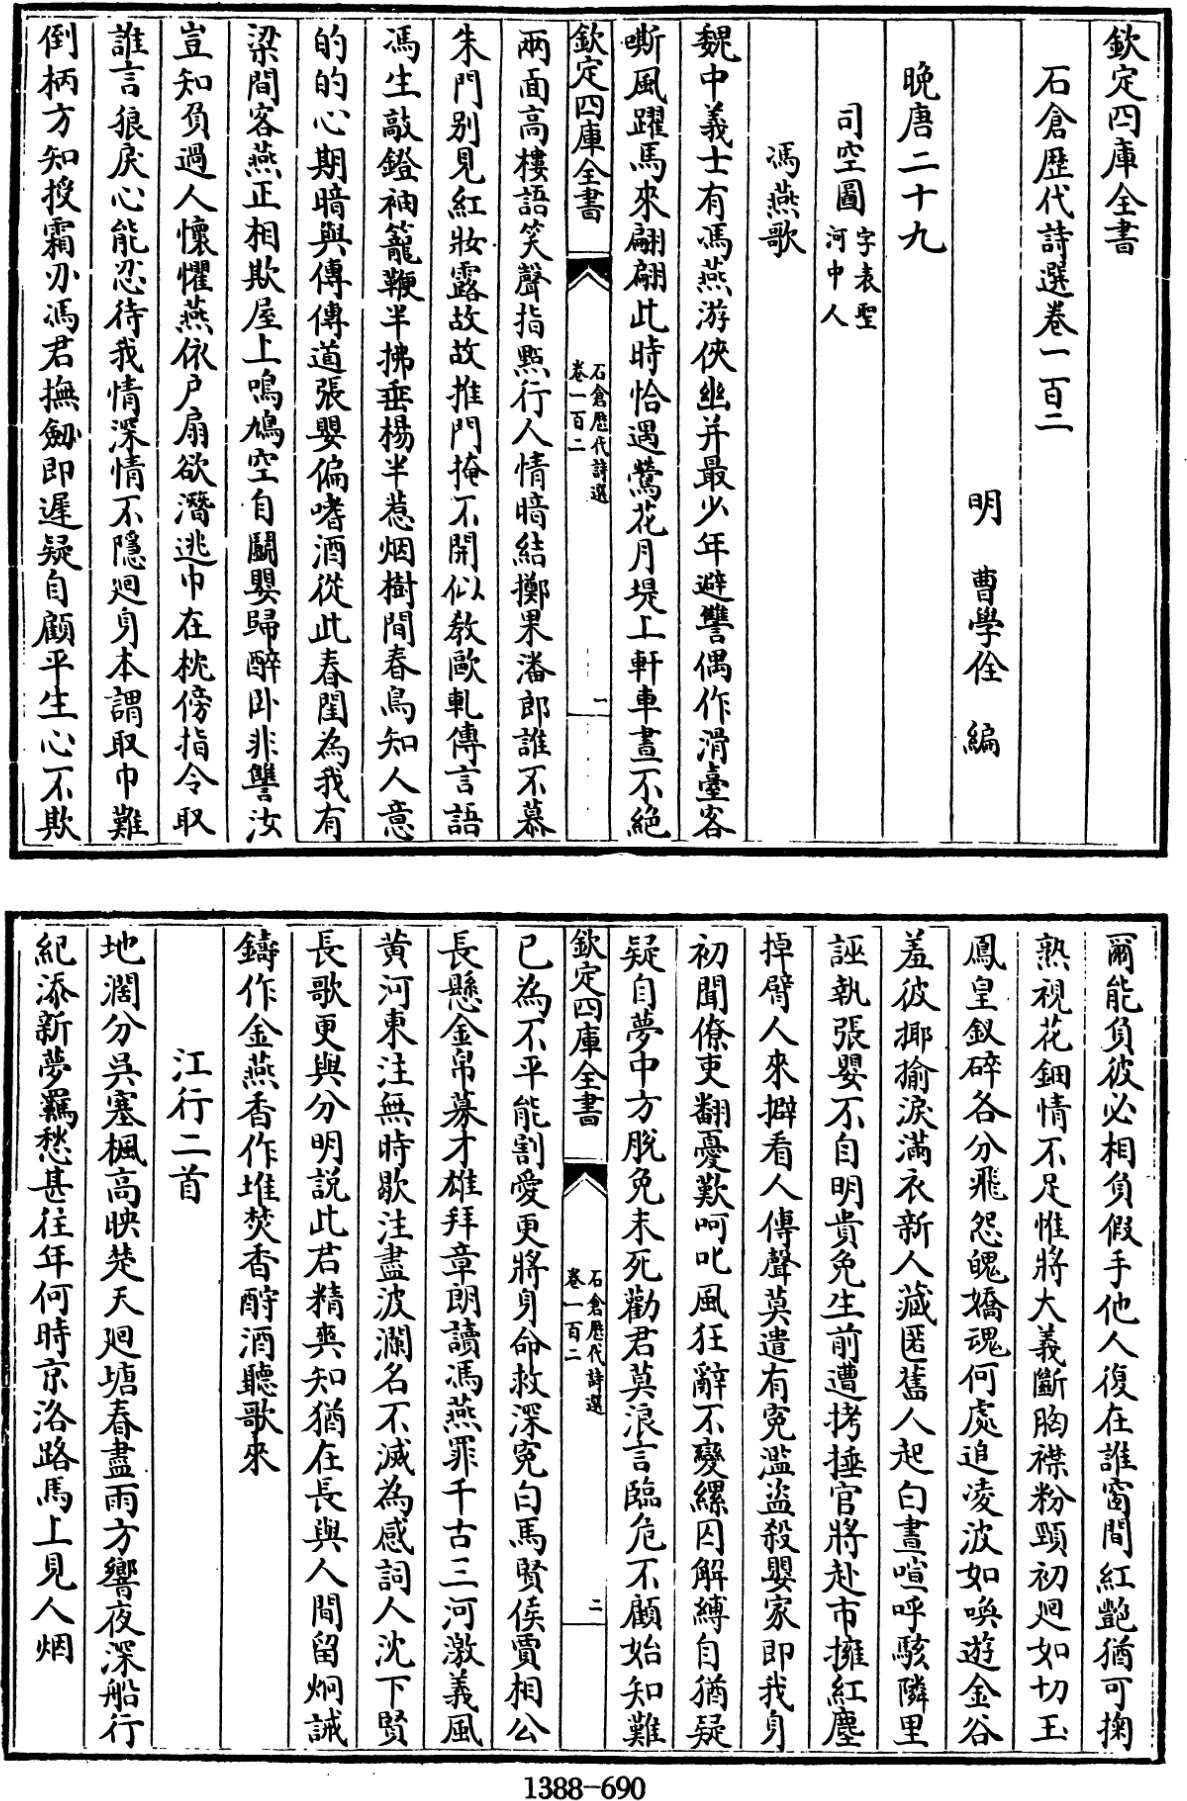 欽定四庫全書
石倉歷代詩選卷一百二
明 曹學佺 編
晚唐二十九
司空圖字表聖河中人
馮燕歌
魏中義士有馮燕游俠幽并最少年避讐偶作滑臺客
嘶風躍馬來翩翩此時恰遇鶯花月堤上軒車晝不絕
欽定四庫全書
石倉歷代詩選
卷一百二
一
兩面高樓語笑聲指點行人情暗結擲果潘郎誰不慕
朱門别見紅妝露故故推門掩不開似教歐軋傳言語
馮生敲鐙袖籠鞭半拂垂楊半惹烟樹間春鳥知人意
的的心期暗與傳傳道張嬰偏嗜酒從此春閨為我有
梁間客燕正相欺屋上鳴鳩空自鬬嬰歸醉卧非讐汝
豈知負過人懷懼燕依户扇欲潛逃巾在枕傍指令取
誰言狼戾心能忍待我情深情不隱廻身本謂取巾難
倒柄方知授霜刃馮君撫劒即遲疑自顧平生心不欺
爾能負彼必相負假手他人復在誰窗間紅艷猶可掬
熟視花鈿情不足惟將大義斷胸襟粉頸初廻如切玉
鳳皇釵碎各分飛怨魄嬌魂何處追凌波如喚遊金谷
羞彼揶揄淚滿衣新人藏匿舊人起白晝喧呼駭隣里
誣執張嬰不自明貴免生前遭拷捶官將赴市擁紅塵
掉臂人來擗看人傳聲莫遣有寃濫盗殺嬰家即我身
初聞僚吏翻憂歎呵叱風狂辭不變縲囚解縛自猶疑
疑自夢中方脱免未死勸君莫浪言臨危不顧始知難
欽定四庫全書
石倉歷代詩選
卷一百二
二
已為不平能割愛更將身命救深寃白馬賢侯賈相公
長懸金帛募才雄拜章朗讀馮燕罪千古三河激義風
黄河東注無時歇注盡波瀾名不滅為感詞人沈下賢
長歌更與分明説此君精爽知猶在長與人間留炯誡
鑄作金燕香作堆焚香酹酒聽歌來
江行二首
地濶分吳塞楓高映楚天廻塘春盡雨方響夜深船行
紀添新夢羈愁甚往年何時京洛路馬上見人烟
1388-690